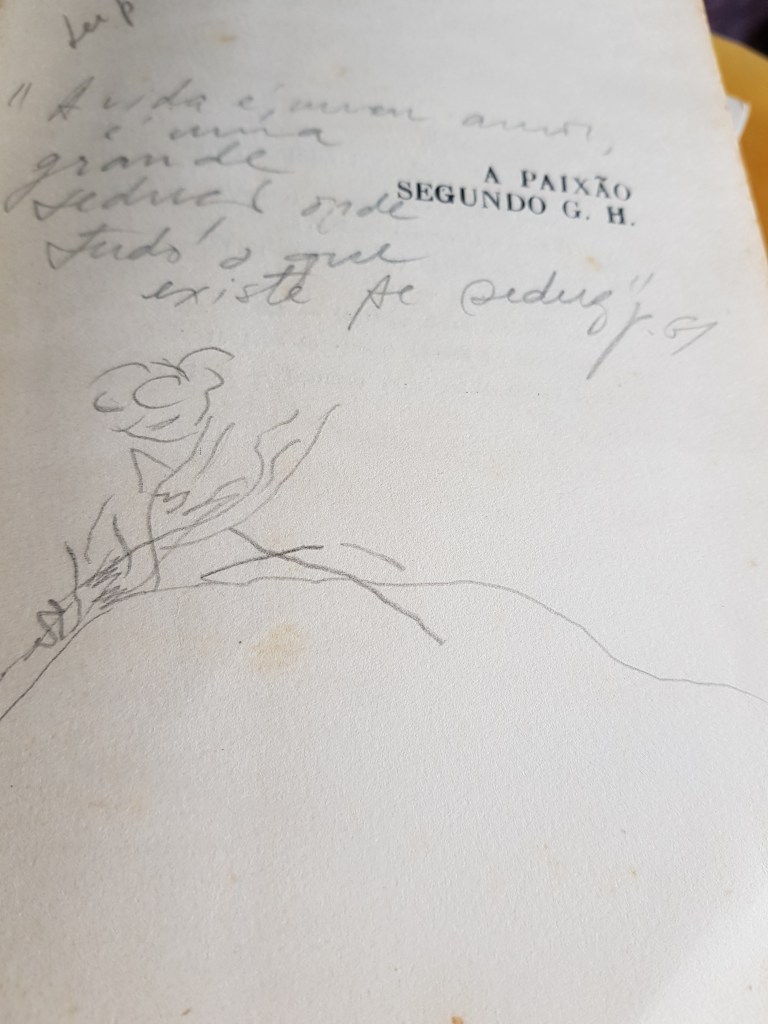 "A vida é, meu amor,
é uma
grande
A PAIXÃO
SEGUNDO G. H.
onde
tudo o que
existe se seduz"